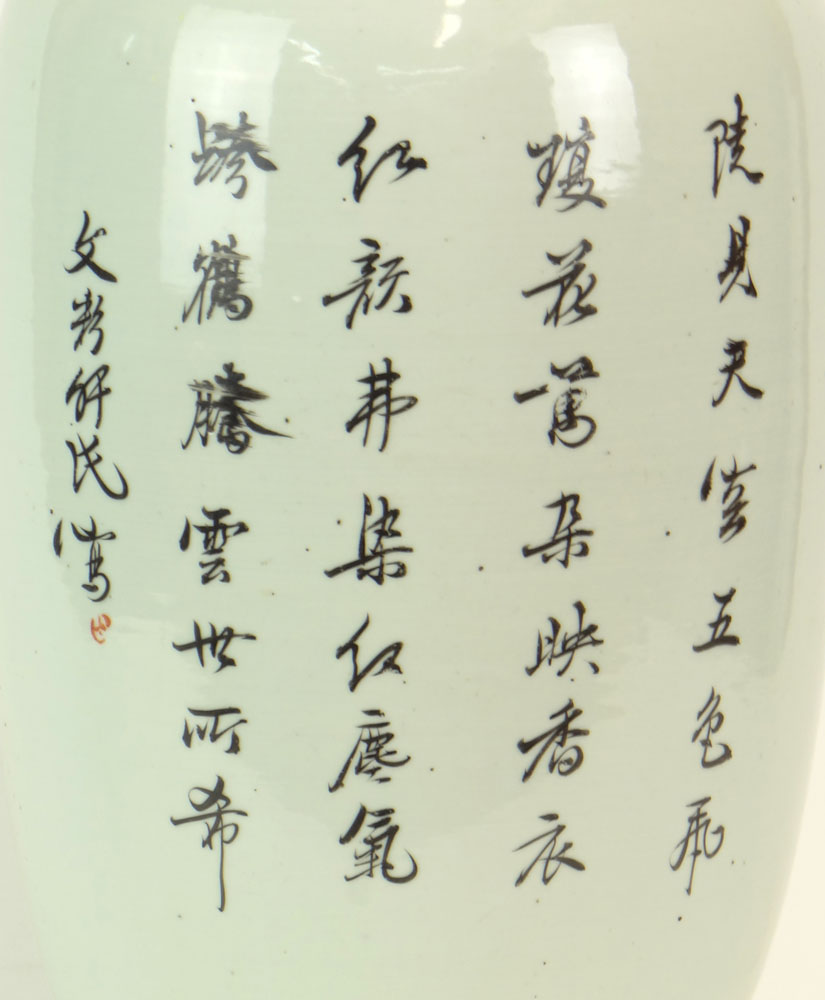 陡見天空五色飛
瓊花萬朵映香衣
紅顏弗染紅塵氣
跨鶴騰雲世所希
文氏寫